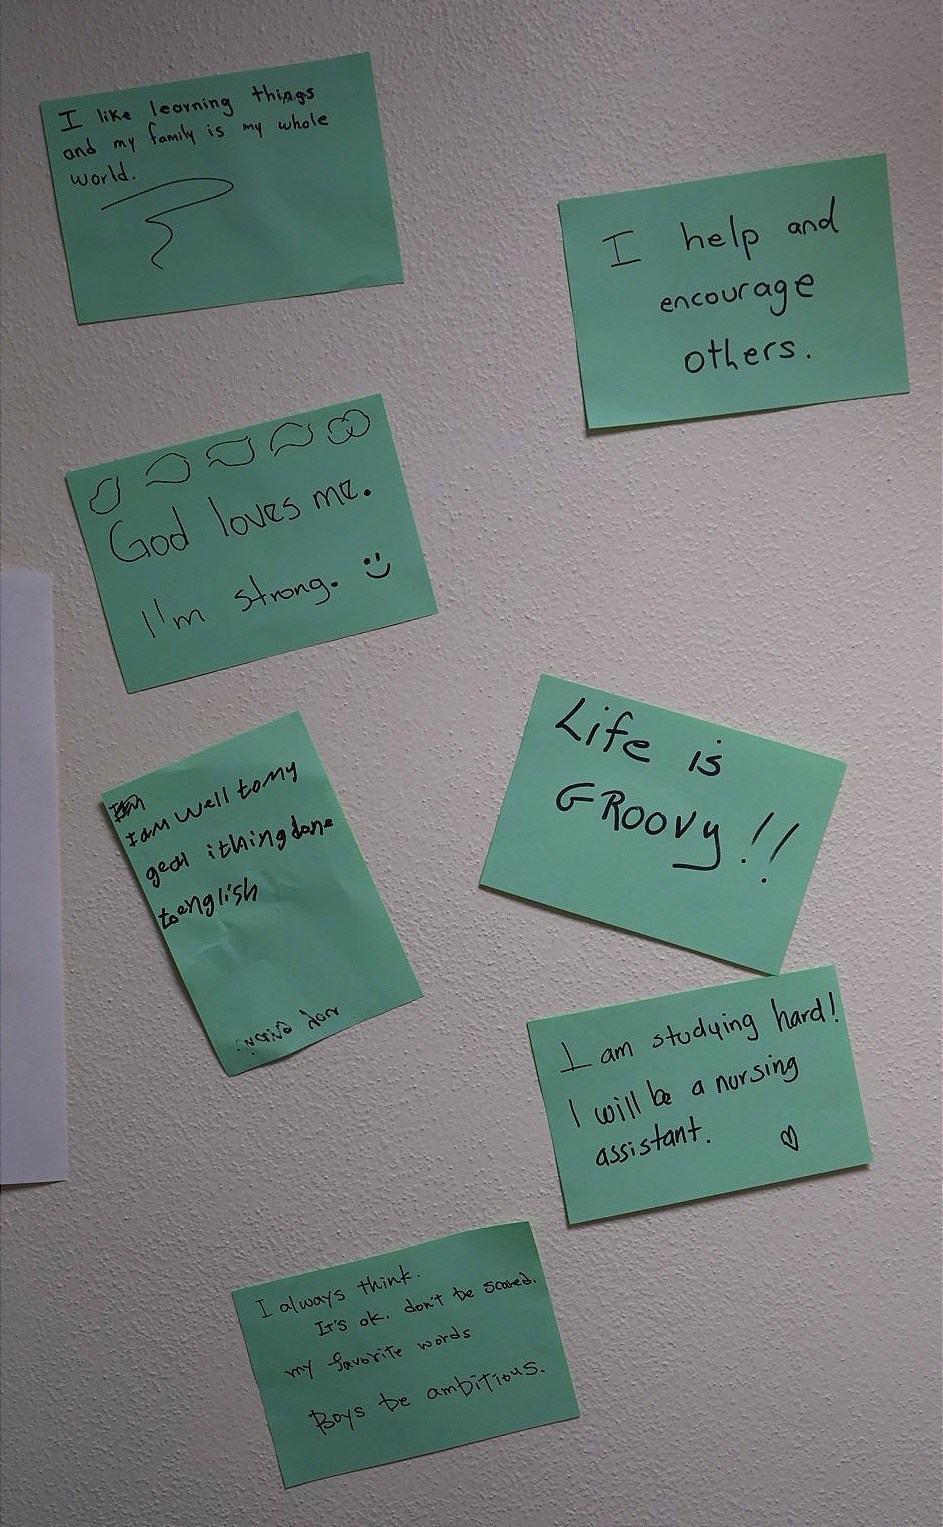 I like learning things
and my family is my whole
world.
I help and
encourage
others.
God loves me.
I'm strong.
Life is
GROOVY!!
I am well to my
geal i thing done
to english
I am studying hard!
I will be a nursing
assistant.
I always think.
It's ok. don't be scared.
my favorite words
Boys be ambitious.